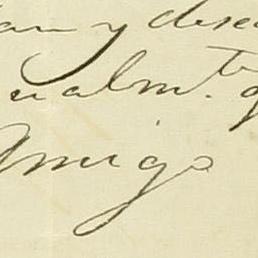 y dese
ualm.te
Amigo